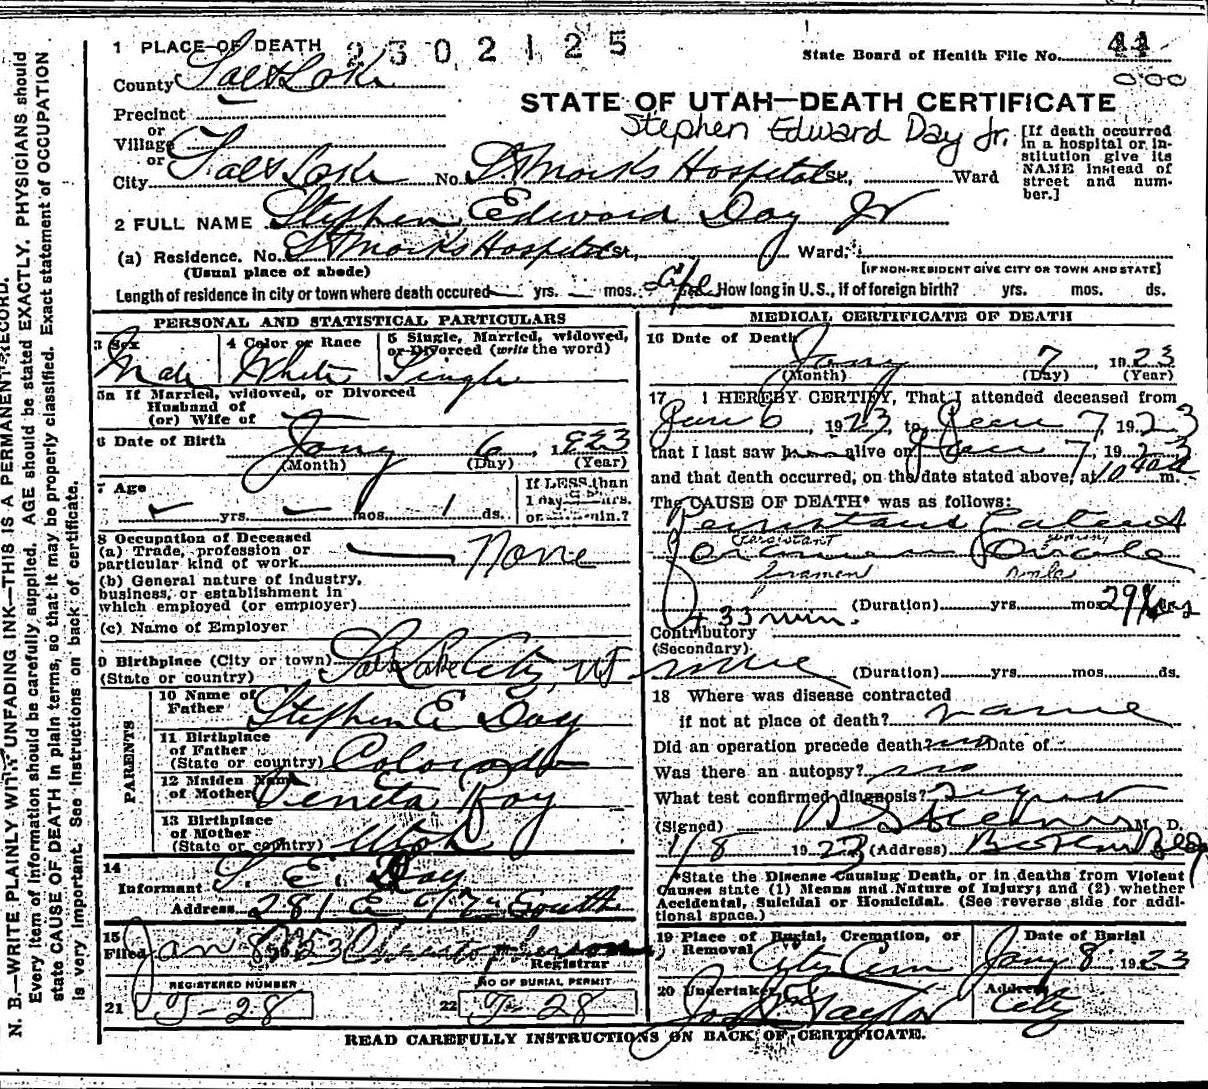 N. B.—WRITE PLAINLY WITH UNFADING INK—THIS IS A PERMANENT RECORD.
Every item of information should be carefully supplied. AGE should be stated EXACTLY. PHYSICIANS should
state CAUSE OF DEATH in plain terms, so that it may be properly classified. Exact statement of OCCUPATION
is very important. See instructions on back of certificate.
1 PLACE OF DEATH 2302125
State Board of Health File No. 41
000
County Salt Lake
STATE OF UTAH—DEATH CERTIFICATE
Precinct
or
Village
or
Stephen Edward Day Jr.
[If death occurred in a hospital or institution give its NAME instead of street and number.]
City Salt Lake No. St Marks Hospital St., Ward
2 FULL NAME Stephen Edward Day Jr
(a) Residence. No. St Marks Hospital St., Ward,
(Usual place of abode) [IF NON-RESIDENT GIVE CITY OR TOWN AND STATE]
Length of residence in city or town where death occured yrs. mos. Life ds. How long in U. S., if of foreign birth? yrs. mos. ds.
PERSONAL AND STATISTICAL PARTICULARS
3 Sex Male
4 Color or Race White
5 Single, Married, widowed, or Divorced (write the word) Single
5a If Married, widowed, or Divorced
Husband of
(or) Wife of
6 Date of Birth Jany 6, 1923
(Month) (Day) (Year)
7 Age yrs. mos. 1 ds.
If LESS than
1 day hrs.
or min.?
8 Occupation of Deceased
(a) Trade, profession or
particular kind of work None
(b) General nature of industry,
business, or establishment in
which employed (or employer)
(c) Name of Employer
9 Birthplace (City or town) Salt Lake City, Ut
(State or country)
PARENTS
10 Name of Father Stephen E Day
11 Birthplace of Father (State or country) Colorado
12 Maiden Name of Mother Venita Roy
13 Birthplace of Mother (State or country) Utah
14
Informant S. E. Day
Address 281 E South
15
Filed Jan 8 1923 Christopherson
Registrar
REGISTERED NUMBER
21 J-28
NO OF BURIAL PERMIT
22 J-28
MEDICAL CERTIFICATE OF DEATH
16 Date of Death Jany 7, 1923
(Month) (Day) (Year)
17 I HEREBY CERTIFY, That I attended deceased from
Jan 6, 1923, to Jan 7, 1923
that I last saw him alive on Jan 7, 1923
and that death occurred, on the date stated above, at 10 40a m.
The CAUSE OF DEATH* was as follows:
Persistant
foramen
(Duration) yrs. mos. 29 hrs
+ 33 min.
Contributory
(Secondary)
none (Duration) yrs. mos. ds.
18 Where was disease contracted
if not at place of death?
Did an operation precede death? no Date of
Was there an autopsy? no
What test confirmed diagnosis?
(Signed) M. D.
1/8 1923 (Address) Boston Bldg
*State the Disease Causing Death, or in deaths from Violent
Causes state (1) Means and Nature of Injury; and (2) whether
Accidental, Suicidal or Homicidal. (See reverse side for addi-
tional space.)
19 Place of Burial, Cremation, or Removal City Cem
Date of Burial Jany 8, 1923
20 Undertaker Jos Taylor
Address City
READ CAREFULLY INSTRUCTIONS ON BACK OF CERTIFICATE.